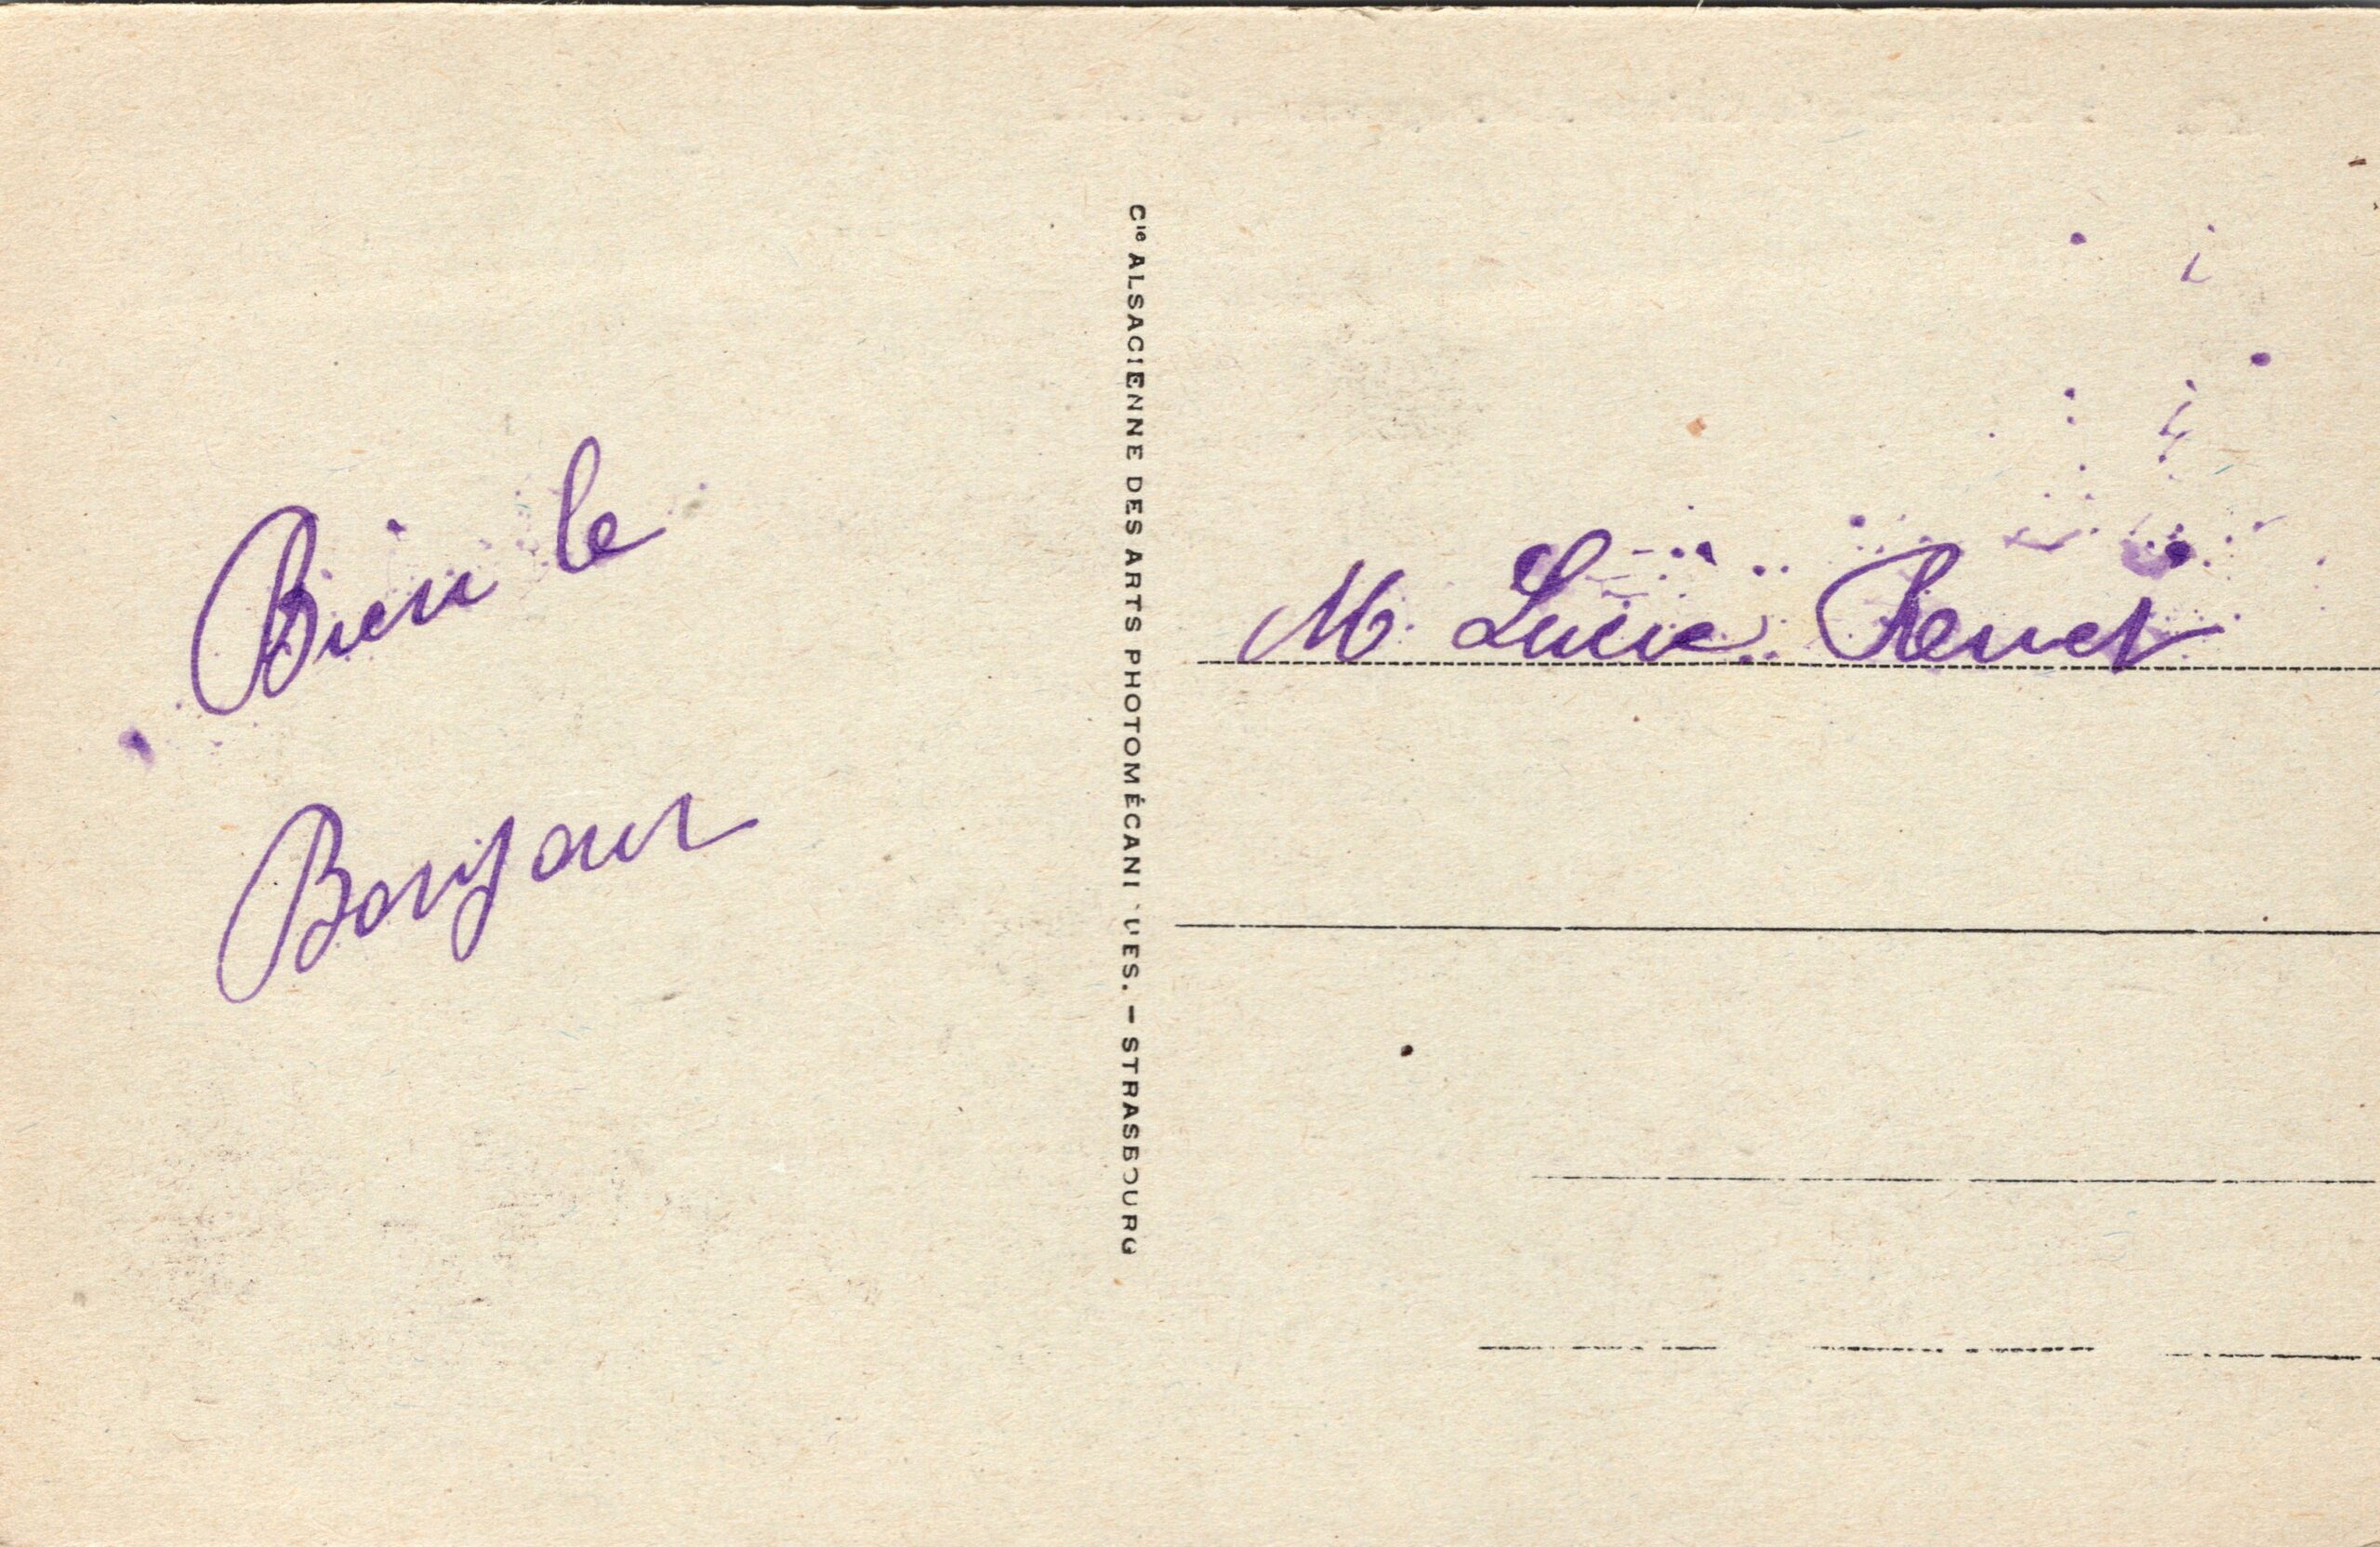 Bien le
Bonjour
Cie ALSACIENNE DES ARTS PHOTOMÉCANI UES. — STRASBOURG
M. Lucie